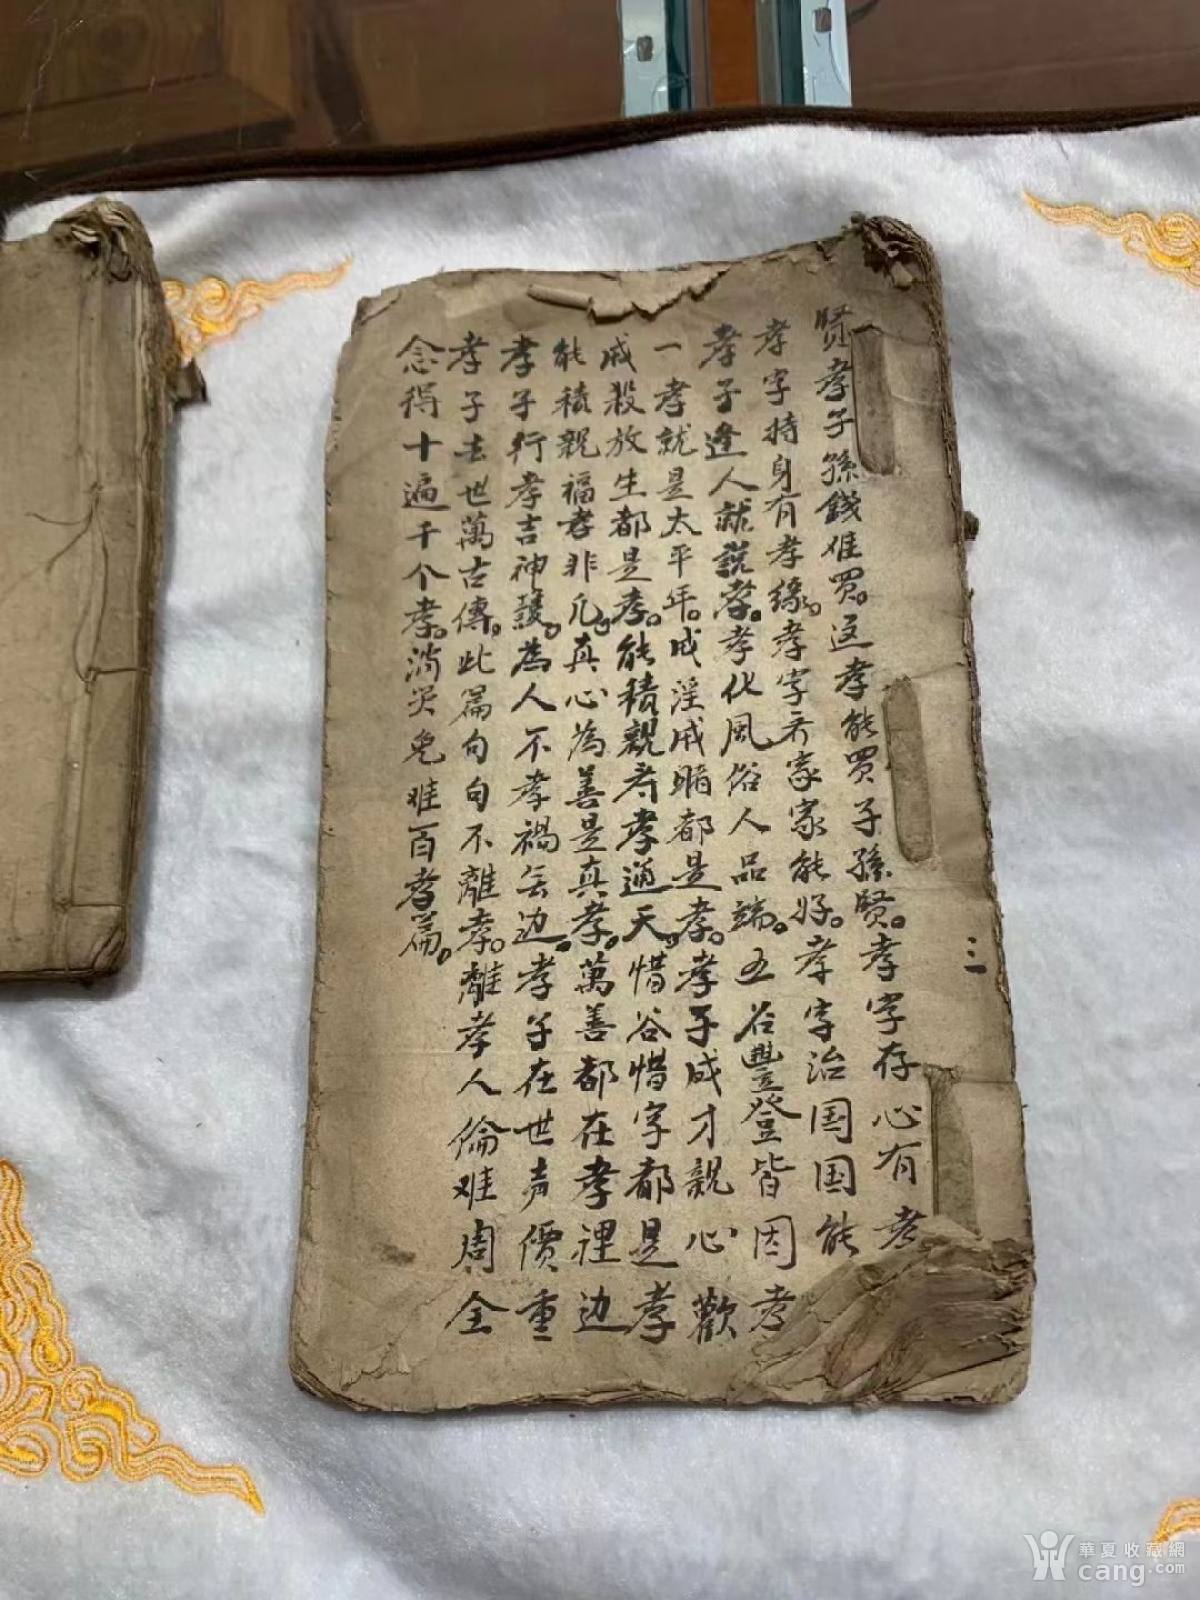 賢孝子孫錢难買。这孝能買子孫賢。孝字存心有孝
孝字持身有孝緣。孝字齐家家能好。孝字治国国能
孝子逢人就說孝。孝化風俗人品端。五谷豐登皆因孝
一孝就是太平年。戒淫戒賭都是孝。孝子成才親心歡
戒殺放生都是孝。能積親寿孝通天。惜谷惜字都是孝
能積親福孝非凡。真心為善是真孝。萬善都在孝裡边
孝子行孝吉神護。為人不孝禍无边。孝子在世声價重
孝子去世萬古傳。此篇句句不離孝。離孝人倫难周全
念得十遍千个孝。消災免难百孝篇。
三
華夏收藏網
cang.com